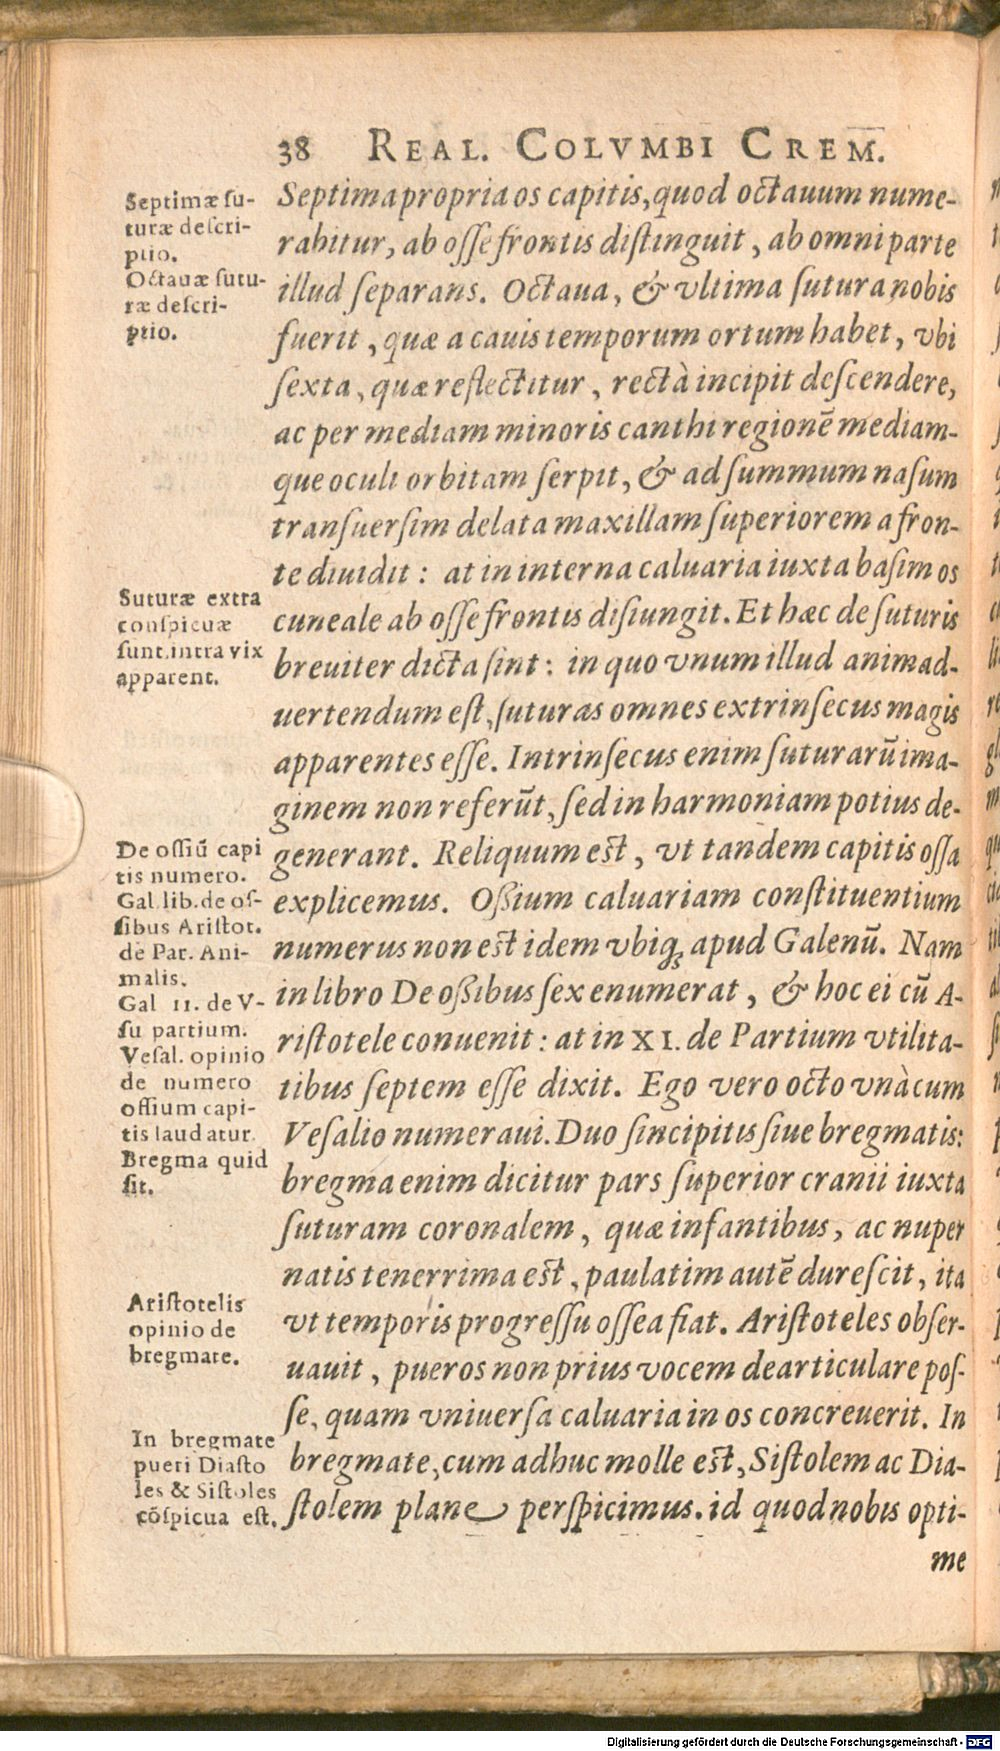 38 REAL. COLVMBI CREM.
Septimæ ſu-
turæ deſcri-
ptio.
Octauæ ſutu-
ræ deſcri-
ptio.
Suturæ extra
conſpicuæ
ſunt, intra vix
apparent.
De oſſiū capi
tis numero.
Gal. lib. de oſ-
ſibus Ariſtot.
de Par. Ani-
malis.
Gal 11. de V-
ſu partium.
Veſal. opinio
de numero
oſſium capi-
tis laudatur.
Bregma quid
ſit.
Ariſtotelis
opinio de
bregmate.
In bregmate
pueri Diaſto
les & Siſtoles
cōſpicua eſt.
Septima propria os capitis, quod octauum nume-
rabitur, ab oſſe frontis diſtinguit, ab omni parte
illud ſeparans. Octaua, & vltima ſutura nobis
fuerit, quæ a cauis temporum ortum habet, vbi
ſexta, quæ reflectitur, rectà incipit deſcendere,
ac per mediam minoris canthi regionē mediam-
que oculi orbitam ſerpit, & ad ſummum naſum
tranſuerſim delata maxillam ſuperiorem a fron-
te diuidit: at in interna caluaria iuxta baſim os
cuneale ab oſſe frontis diſiungit. Et hæc de ſuturis
breuiter dicta ſint: in quo vnum illud animad-
uertendum eſt, ſuturas omnes extrinſecus magis
apparentes eſſe. Intrinſecus enim ſuturarū ima-
ginem non referūt, ſed in harmoniam potius de-
generant. Reliquum eſt, vt tandem capitis oſſa
explicemus. Oſſium caluariam conſtituentium
numerus non eſt idem vbiq; apud Galenū. Nam
in libro De oſſibus ſex enumerat, & hoc ei cū A-
riſtotele conuenit: at in XI. de Partium vtilita-
tibus ſeptem eſſe dixit. Ego vero octo vnà cum
Veſalio numeraui. Duo ſincipitis ſiue bregmatis:
bregma enim dicitur pars ſuperior cranii iuxta
ſuturam coronalem, quæ infantibus, ac nuper
natis tenerrima eſt, paulatim autē dureſcit, ita
vt temporis progreſſu oſſea fiat. Ariſtoteles obſer-
uauit, pueros non prius vocem dearticulare poſ-
ſe, quam vniuerſa caluaria in os concreuerit. In
bregmate, cum adhuc molle eſt, Siſtolem ac Dia-
ſtolem plane perſpicimus. id quod nobis opti-
me
Digitalisierung gefördert durch die Deutsche Forschungsgemeinschaft - DFG